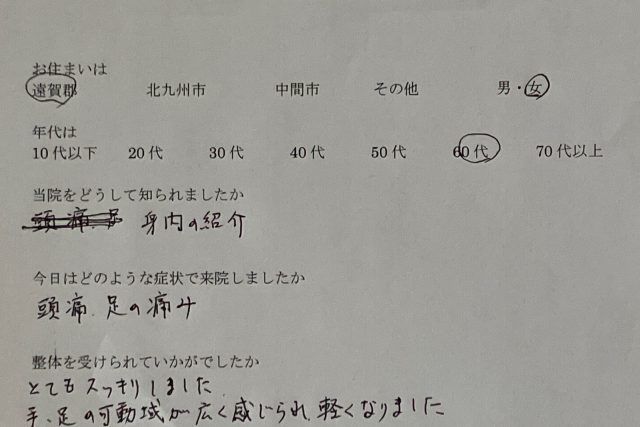 お住まいは
遠賀郡 北九州市 中間市 その他 男・女
年代は
10代以下 20代 30代 40代 50代 60代 70代以上
当院をどうして知られましたか
頭痛.足 身内の紹介
今日はどのような症状で来院しましたか
頭痛.足の痛み
整体を受けられていかがでしたか
とてもスッキリしました
手、足の可動域が広く感じられ、軽くなりました